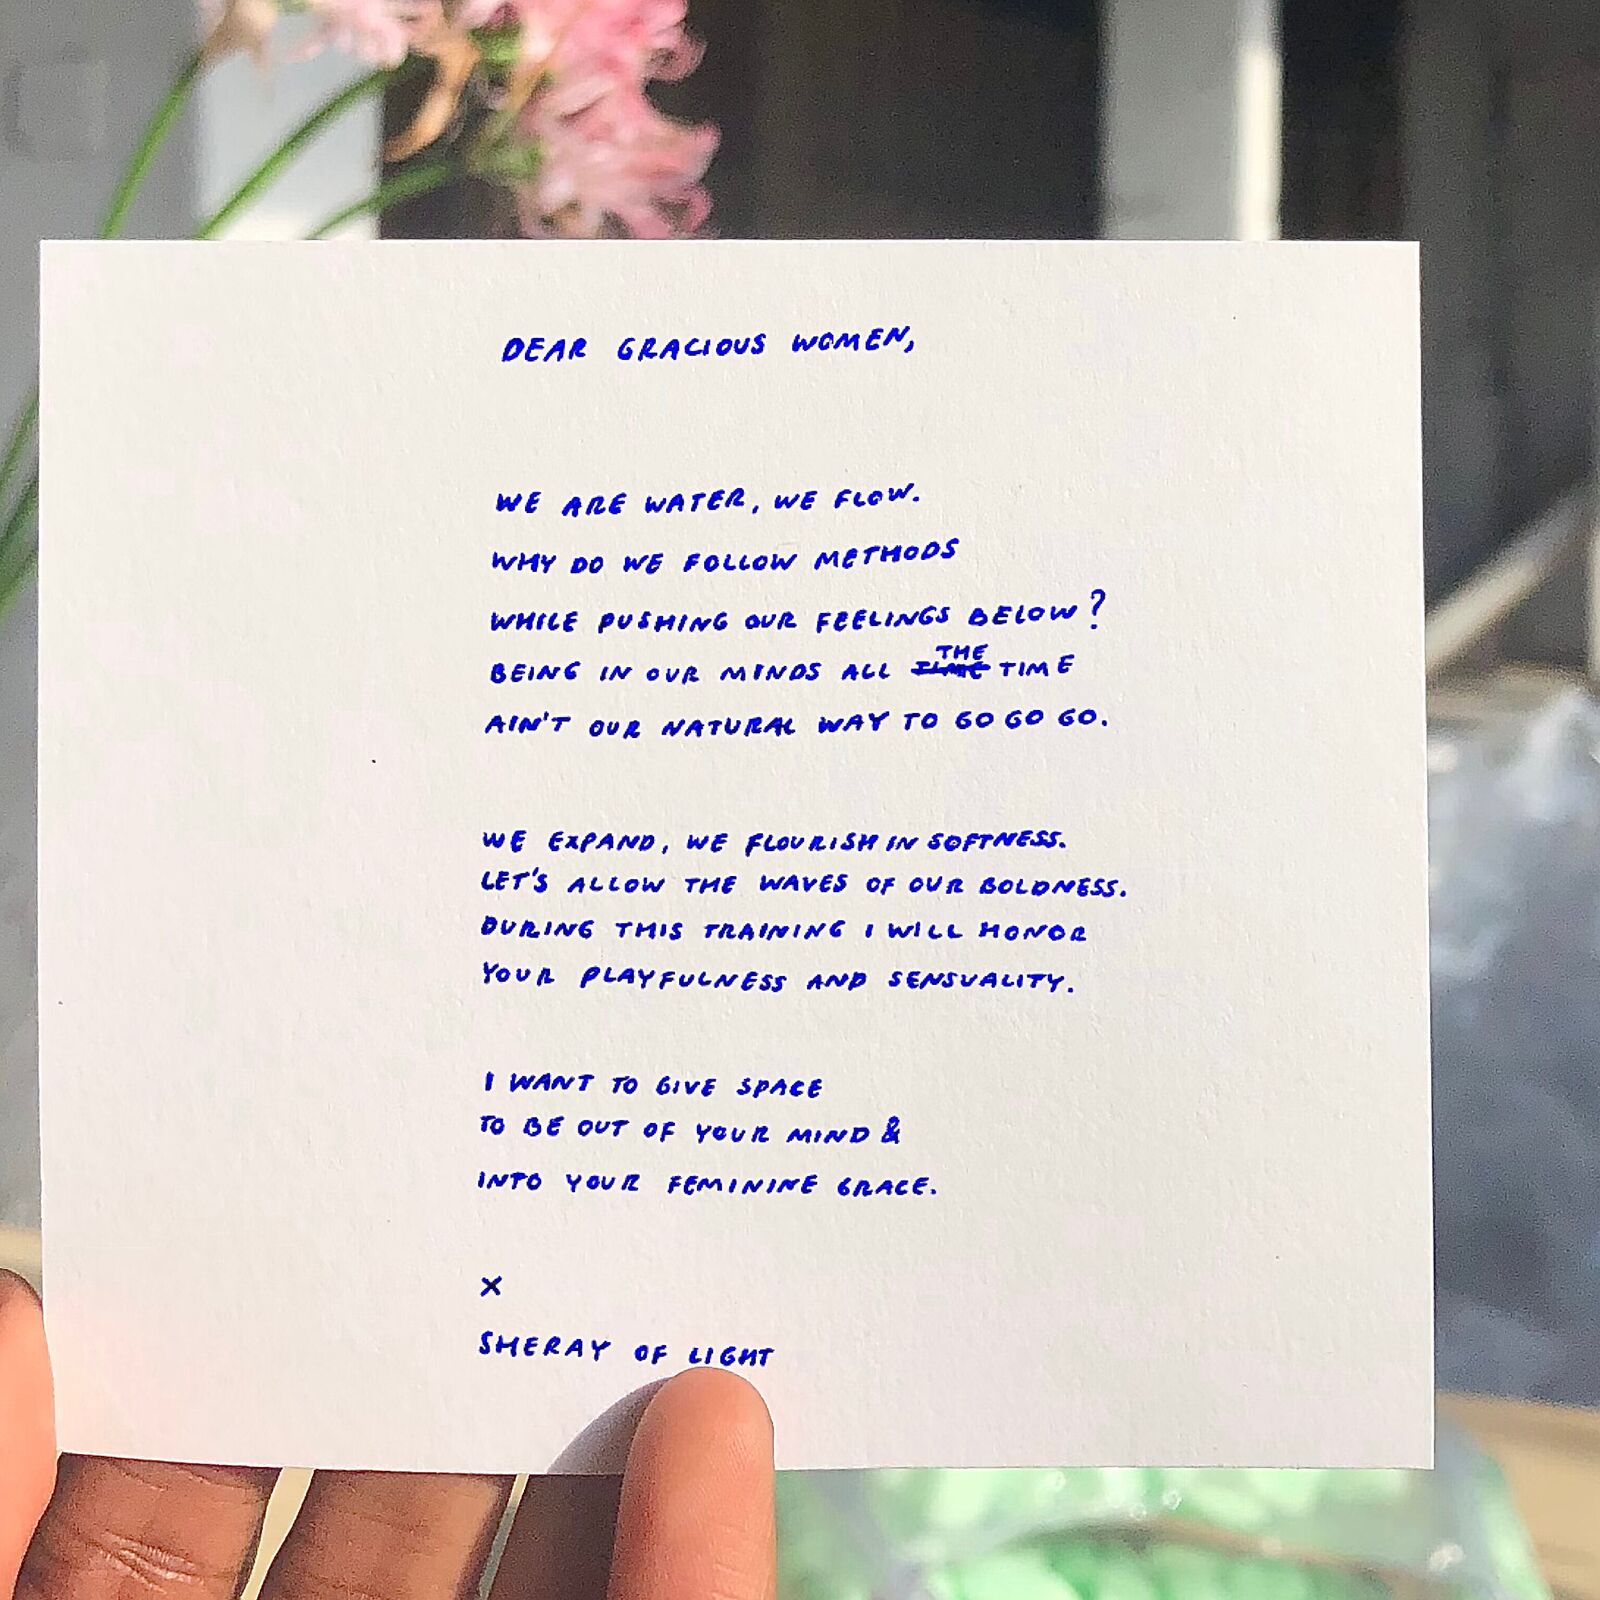 DEAR GRACIOUS WOMEN,
WE ARE WATER, WE FLOW.
WHY DO WE FOLLOW METHODS
WHILE PUSHING OUR FEELINGS BELOW?
BEING IN OUR MINDS ALL THE TIME
AIN'T OUR NATURAL WAY TO GO GO GO.
WE EXPAND, WE FLOURISH IN SOFTNESS.
LET'S ALLOW THE WAVES OF OUR BOLDNESS.
DURING THIS TRAINING I WILL HONOR
YOUR PLAYFULNESS AND SENSUALITY.
I WANT TO GIVE SPACE
TO BE OUT OF YOUR MIND &
INTO YOUR FEMININE GRACE.
X
SHERAY OF LIGHT